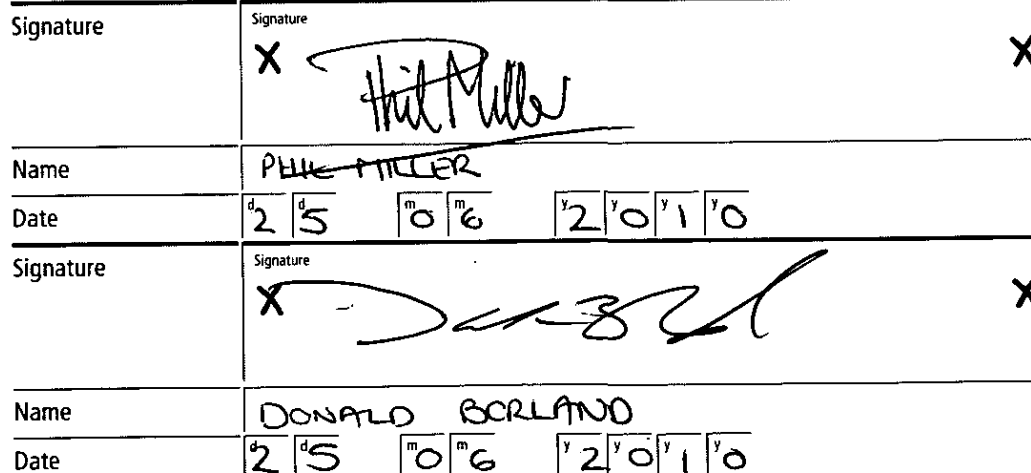 Signature Signature
X Phil Miller X
Name PHIL MILLER
Date d2 d5 m0 m6 y2 y0 y1 y0
Signature Signature
X X
Name DONALD BORLAND
Date d2 d5 m0 m6 y2 y0 y1 y0